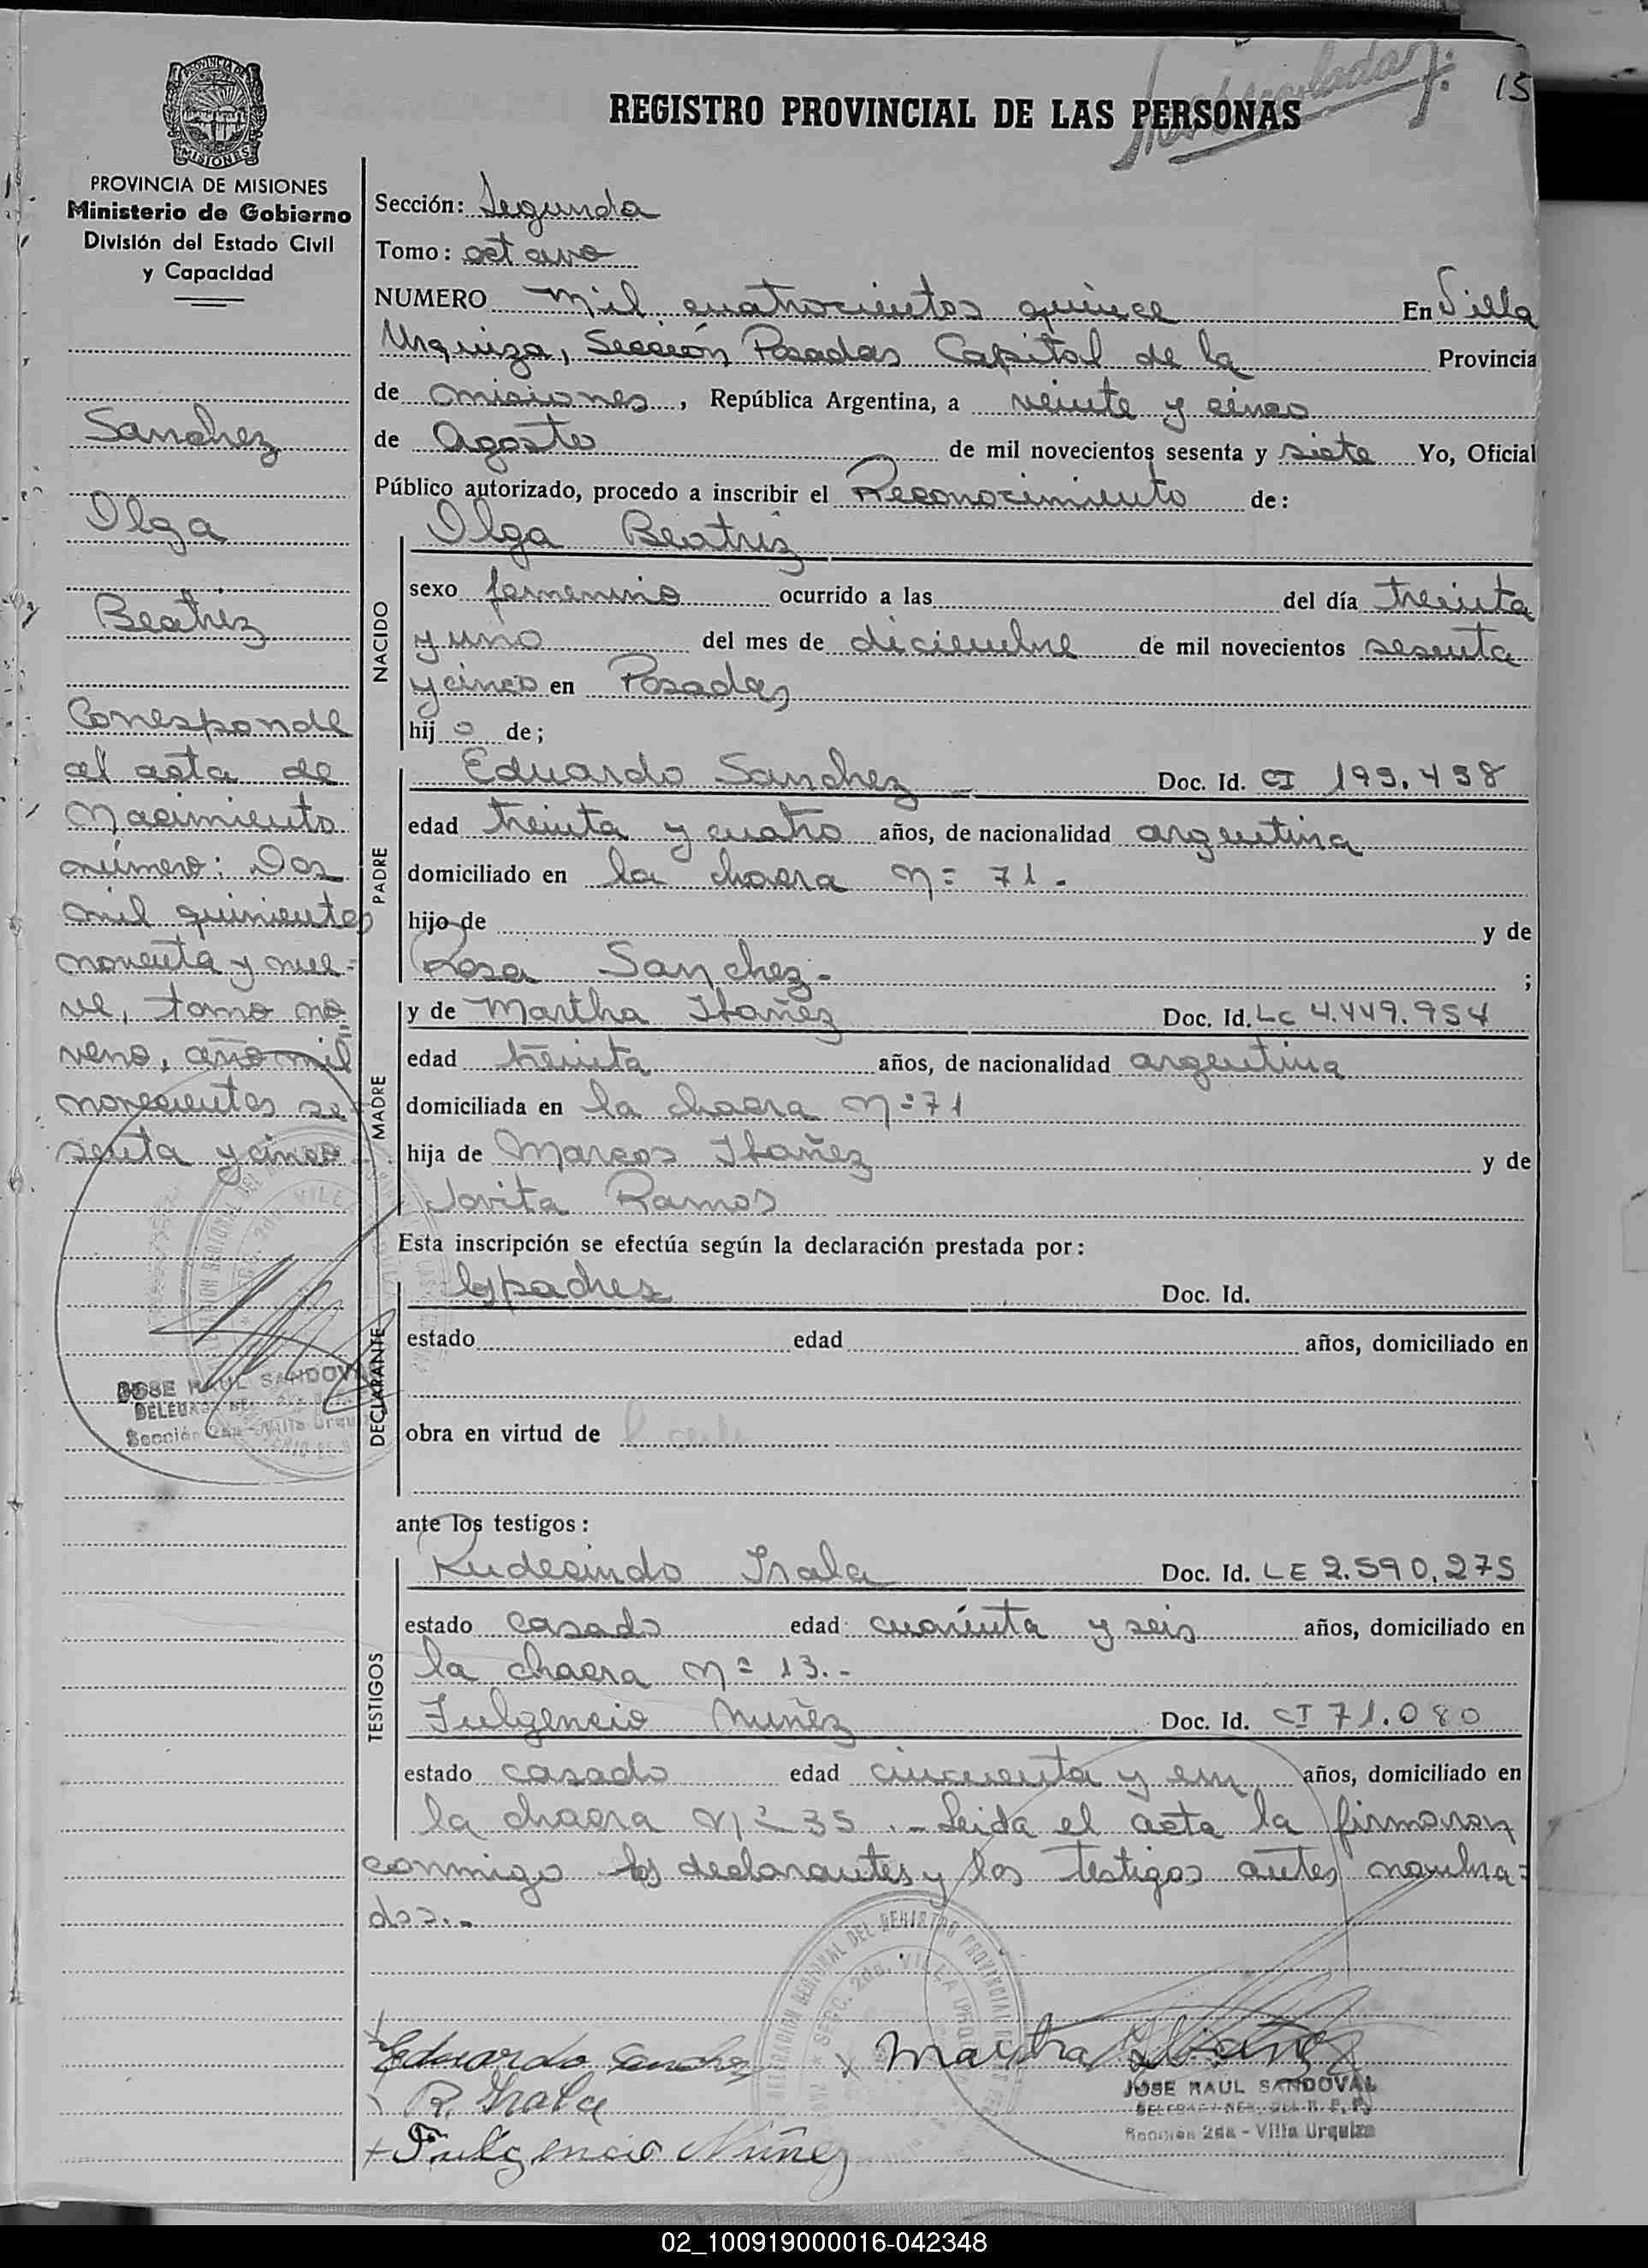 15
REGISTRO PROVINCIAL DE LAS PERSONAS
PROVINCIA DE MISIONES
MISIONES
PROVINCIA DE MISIONES
Ministerio de Gobierno
División del Estado Civil
y Capacidad
Sanchez
Olga
Beatriz
Corresponde
al acta de
nacimiento
número: Dos
mil quinientos
noventa y nue-
ve, tomo no
veno, año mil
novecientos se-
senta y cinco
JOSE RAUL SANDOVAL
Sección 2da - Villa Urqu
Sección: Segunda
Tomo: octavo
NUMERO mil cuatrocientos quince En Villa
Urquiza, Sección Posadas Capital de la Provincia
de misiones, República Argentina, a veinte y cinco
de Agosto de mil novecientos sesenta y siete Yo, Oficial
Público autorizado, procedo a inscribir el Reconocimiento de:
NACIDO
Olga Beatriz
sexo femenino ocurrido a las del día treinta
y uno del mes de diciembre de mil novecientos sesenta
y cinco en Posadas
hij o de;
PADRE
Eduardo Sanchez Doc. Id. CI 199.498
edad treinta y cuatro años, de nacionalidad argentina
domiciliado en la chacra n= 71.-
hijo de y de
Rosa Sanchez.- ;
MADRE
y de Martha Ibañez Doc. Id. LC 4.449.954
edad treinta años, de nacionalidad argentina
domiciliada en la chacra n=71
hija de Marcos Ibañez y de
Jovita Ramos
Esta inscripción se efectúa según la declaración prestada por:
DECLARANTE
los padres Doc. Id.
estado edad años, domiciliado en
obra en virtud de
ante los testigos:
TESTIGOS
Rudesindo Irala Doc. Id. LE 2.590.275
estado casado edad cuarenta y seis años, domiciliado en
la chacra n= 13.-
Fulgencio Nuñez Doc. Id. CI 71.080
estado casado edad cincuenta y años, domiciliado en
la chacra n= 35.- Leida el acta la firmaron
conmigo los declarantes y los testigos antes nombra-
dos.-
DELEGACION REGIONAL DEL REGISTRO PROVINCIAL
SECC. 2da. VILLA URQUIZA
Eduardo Sanchez x Martha Ibañez
R. Irala
JOSE RAUL SANDOVAL
Sección 2da - Villa Urquiza
+ Fulgencio Núñez
02_100919000016-042348